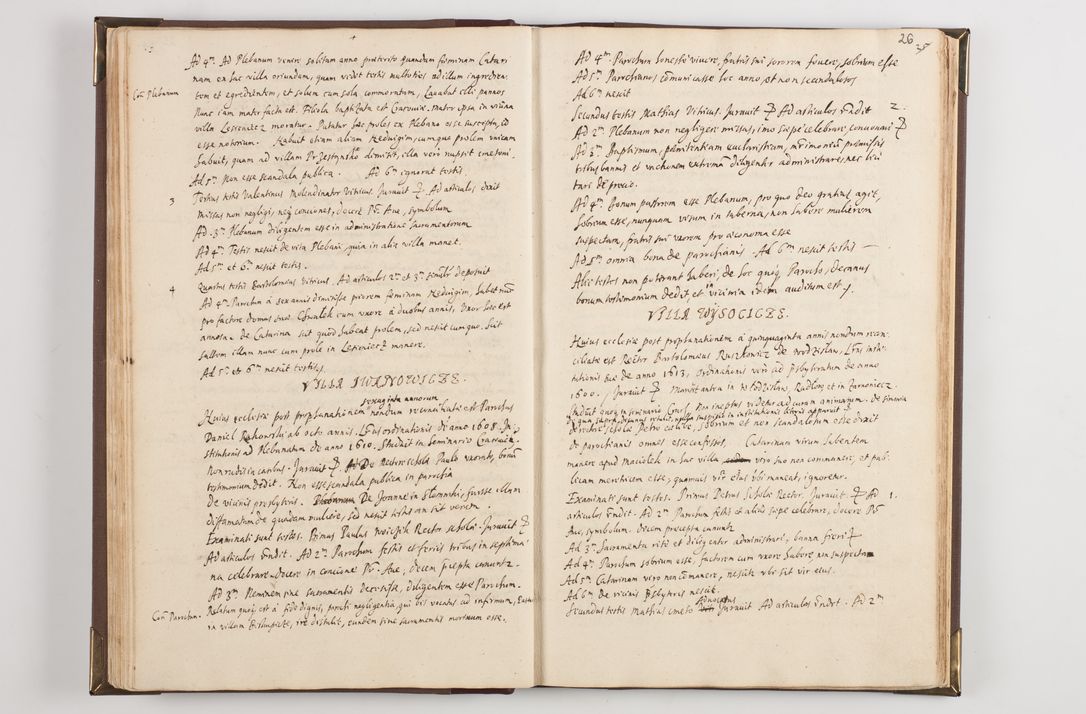 Ad 4m. Ad Plebanum venire solitam anno praeterito quandam foeminam Catari
nam ex hac villa oriundam, quam vidit testis multoties ad illum ingredien
tem et egredientem, et solum cum sola commorantem, lauabat illi pannos
Con Plebanum
Nunc iam mater facta est. Filiola baptizata est Cracouiae. Mater ipsa in vicina
villa moratur. Putatur hac proles ex Plebano esse suscepta, id
esse notorium. Habuit etiam aliam Heduigim, cum qua prolem unicam
habuit, quam ad villam dimisit, illa vero nupsit
Ad 5m. Non esse scandala publica. Ad 6m ignorat testis.
3
Tertius testis Valentinus Molendinator Vitricus. Iurauit Ad articulos dixit
missas non negligi, neq conciones, docere Pr. Aue, symbolum
Ad. 3m Plebanum diligentem esse in administratione sacramentorum
Ad 4m. Testis nescit de vita Plebani, quia in alia villa manet.
Ad 5m et 6m nescit testis.
4
Quartus testis Bartolomeus Vitricus. Ad articulos 2m et 3m deposuit
Ad 4m. Parochum a sex annis dimisisse priorem foeminam Heduigim, habet nunc
pro factore domus suae cum uxore a duobus annis, Uxor eius est
annosa. De Catarina ait quod habent prolem, sed nescit cum quo. Sit
illam nunc cum prole in manere.
Ad 5m et 6m nescit testis.
VILLA IWANOWICZE.
sexaginta annorum
Huius ecclesiae post prophanationem nondum reconciliatae est Parochus
Daniel Rakowski ab octo annis. Lras ordinationis de anno 1608. In
stitutionis ad Plebanatum de anno 1610. Studuit in Seminario Cracouien.
Non rudis in casibus. Iurauit De Rectore schola Paulo uxorato, bonum
testimonium dedit. Non esse scandala publica in parochia
de vicinis presbyteris. De Ioanne in fuisse illum
diffamatum de quadam muliere, sed nescit testis an sit verum
Examinati sunt testes. Primus Paulus Rector schola. Iurauit
Ad articulos rndit. Ad 2m Parochum festis et feriis tribus in septima
na celebrare. Docere in concione Pr. Aue, decem praecepta
Ad 3m Neminem sine sacramentis decessisse, diligentem esse Parochum.
Con Parochum.
Relatum quoq est a fide dignis, parochi negligentia, qui bis vocatus ad infirmum,
in villam ire distulit, eundem sine sacramentis mortuum esse.
26
Ad 4m. Parochum honeste vivere, fratris sui sororem fovere, sobrium esse
Ad 5m Parochianos comunicasse hoc anno, et non scandalosos
Ad 6m nescit
Secundus testis Mathias Vitricus. Iurauit Ad articulos rndit
2.
Ad 2m Plebanum non negligere missas, imo saepe celebrare, concionari
Ad 3m. Baptismum, poenitentiam eucharistiam, mrimonium praemissis
tribus bannis et unctionem extremam diligenter administrare, nec
de precio.
Ad 4m bonum pastorem esse Plebanum, pro quo Deo gratias agit,
sobrium esse, nunquam visum in taberna, non habere mulierem
suspectam, fratris sui uxorem pro oeconoma esse
Ad 5m omnia bona de parochianis. Ad 6m nescit testis
Alii testes non potuerunt haberi, de hoc quoq Parocho, decanus
bonum testimonium dedit, et in vicinia idem auditum est.
VILLA WYSOCICZE.
Huius ecclesiae post prophanationem a quinquaginta annis nondum recon
ciliatae est Rector Bartolomeus de Wodzislaw, Lras insti
tutionis suae de anno 1613, Ordinationis vero ad psbyteratum de anno
1600. Iurauit Mansit antea in Wlodzislaw, et in Zarnowiecz.
Studuit quoq in seminario Crac. Non ineptus videtur ad curam animarum.
De rectore scholae Petro coelibe, sobrium et non scandalosum esse dixit
De parochianis omnes esse confessos, Catarinam virum habentem
manere apud Maciolek in hac villa viro suo non comunicare, et pub
licam meretricem esse, quamuis vir eius ubi maneat, ignoretur.
Examinati sunt testes. Primus Petrus Scholae Rector. Iurauit Ad
1.
articulos rndit. Ad 2m Parochum festis et aliis saepe celebrare, docere Pr
Aue, symbolum. Decem praecepta
Ad 3m Sacramenta rite et diligenter administrare, banna fieri
Ad 4m Parochum sobrium esse, factorem cum uxore habere non suspectam
Ad 5m Catarinam viro non comanere, nescit ubi sit vir eius.
Ad 6m De vicinis psbyteris nescit.
Secundus testis Mathias cmeto Iurauit Ad articulos rndit. Ad 2m